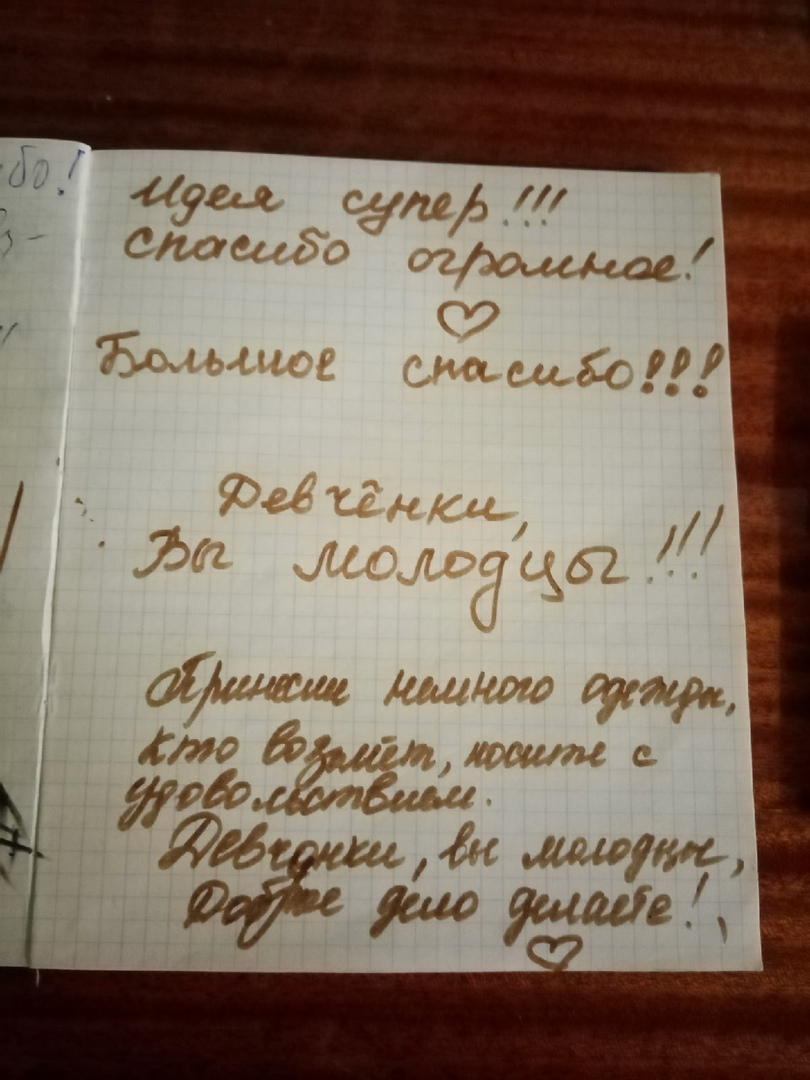 бо!
Идея супер!!!
спасибо огромное!
Большое спасибо!!!
Девчёнки,
Вы молодцы!!!
Принесли немного одежды,
кто возьмёт, носите с
удовольствием.
Девчонки, вы молодцы,
Доброе дело делаете!